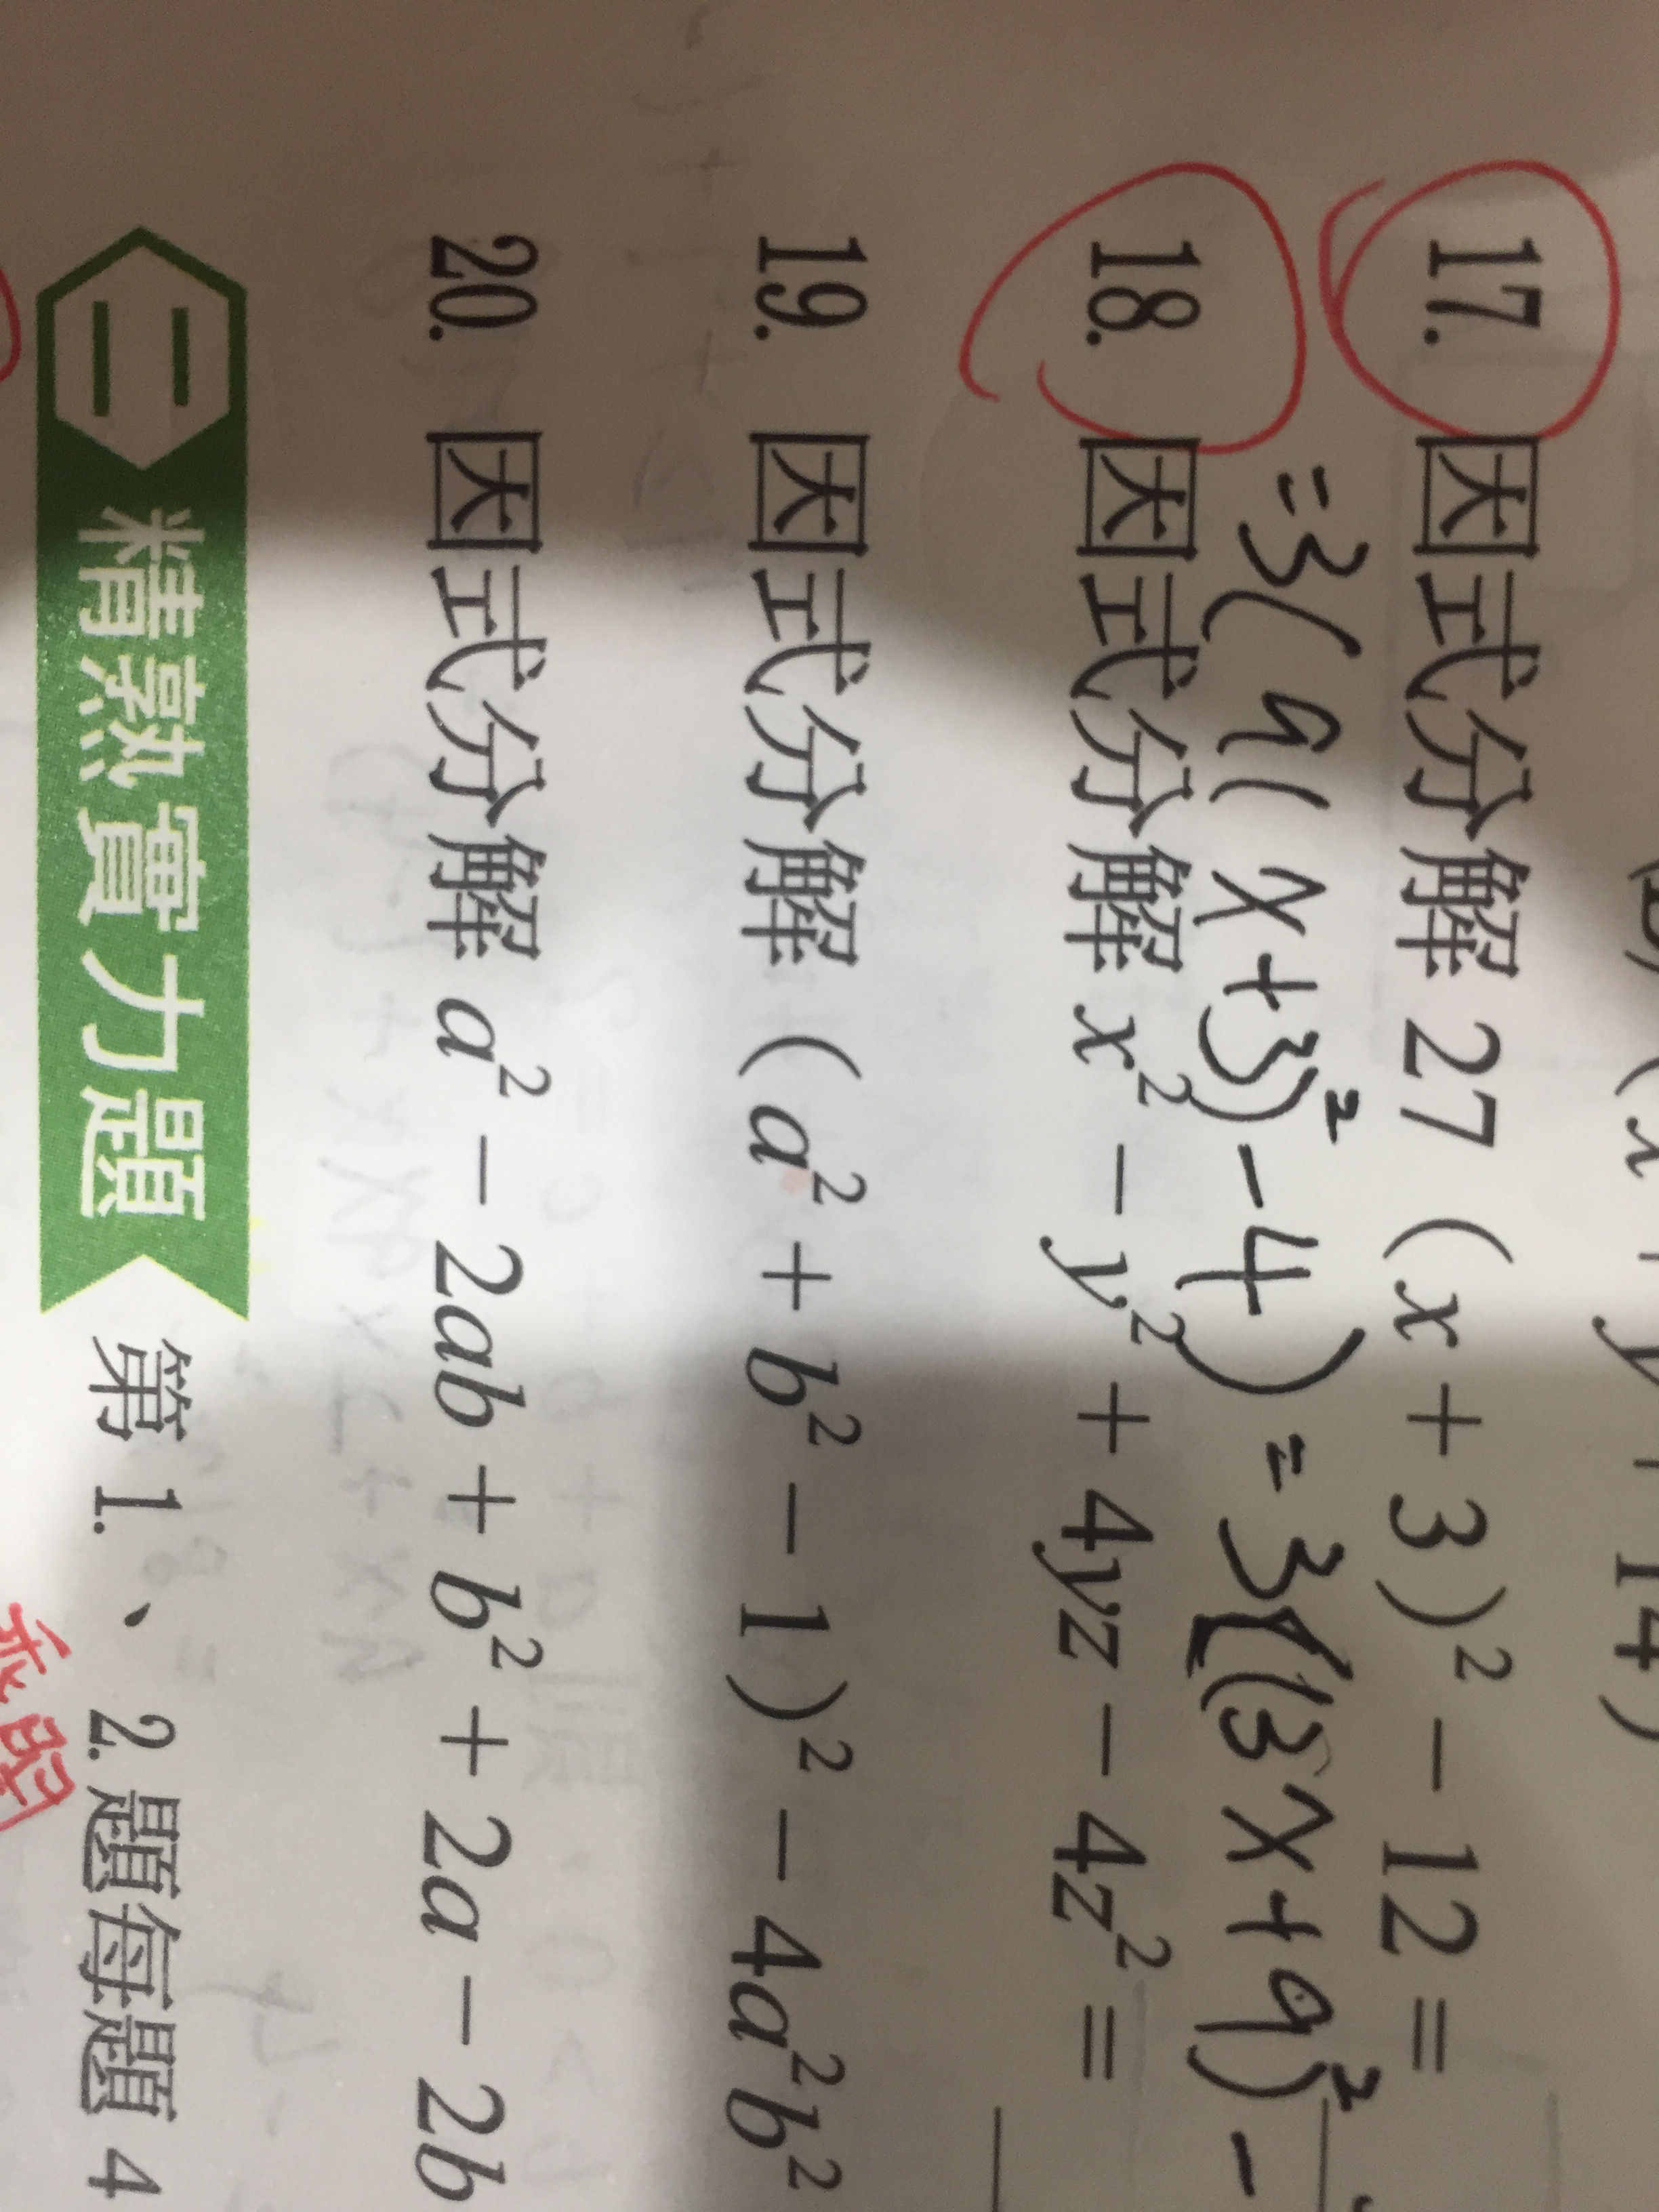 17. 因式分解 27 (x + 3)² − 12 =
= 3 ( 9 ( x + 3 )² − 4 ) = 3 ( ( 3x + 9 )² −
18. 因式分解 x² − y² + 4yz − 4z² =
19. 因式分解 (a² + b² − 1)² − 4a²b²
20. 因式分解 a² − 2ab + b² + 2a − 2b
二 精熟實力題 第 1.、2. 題每題 4